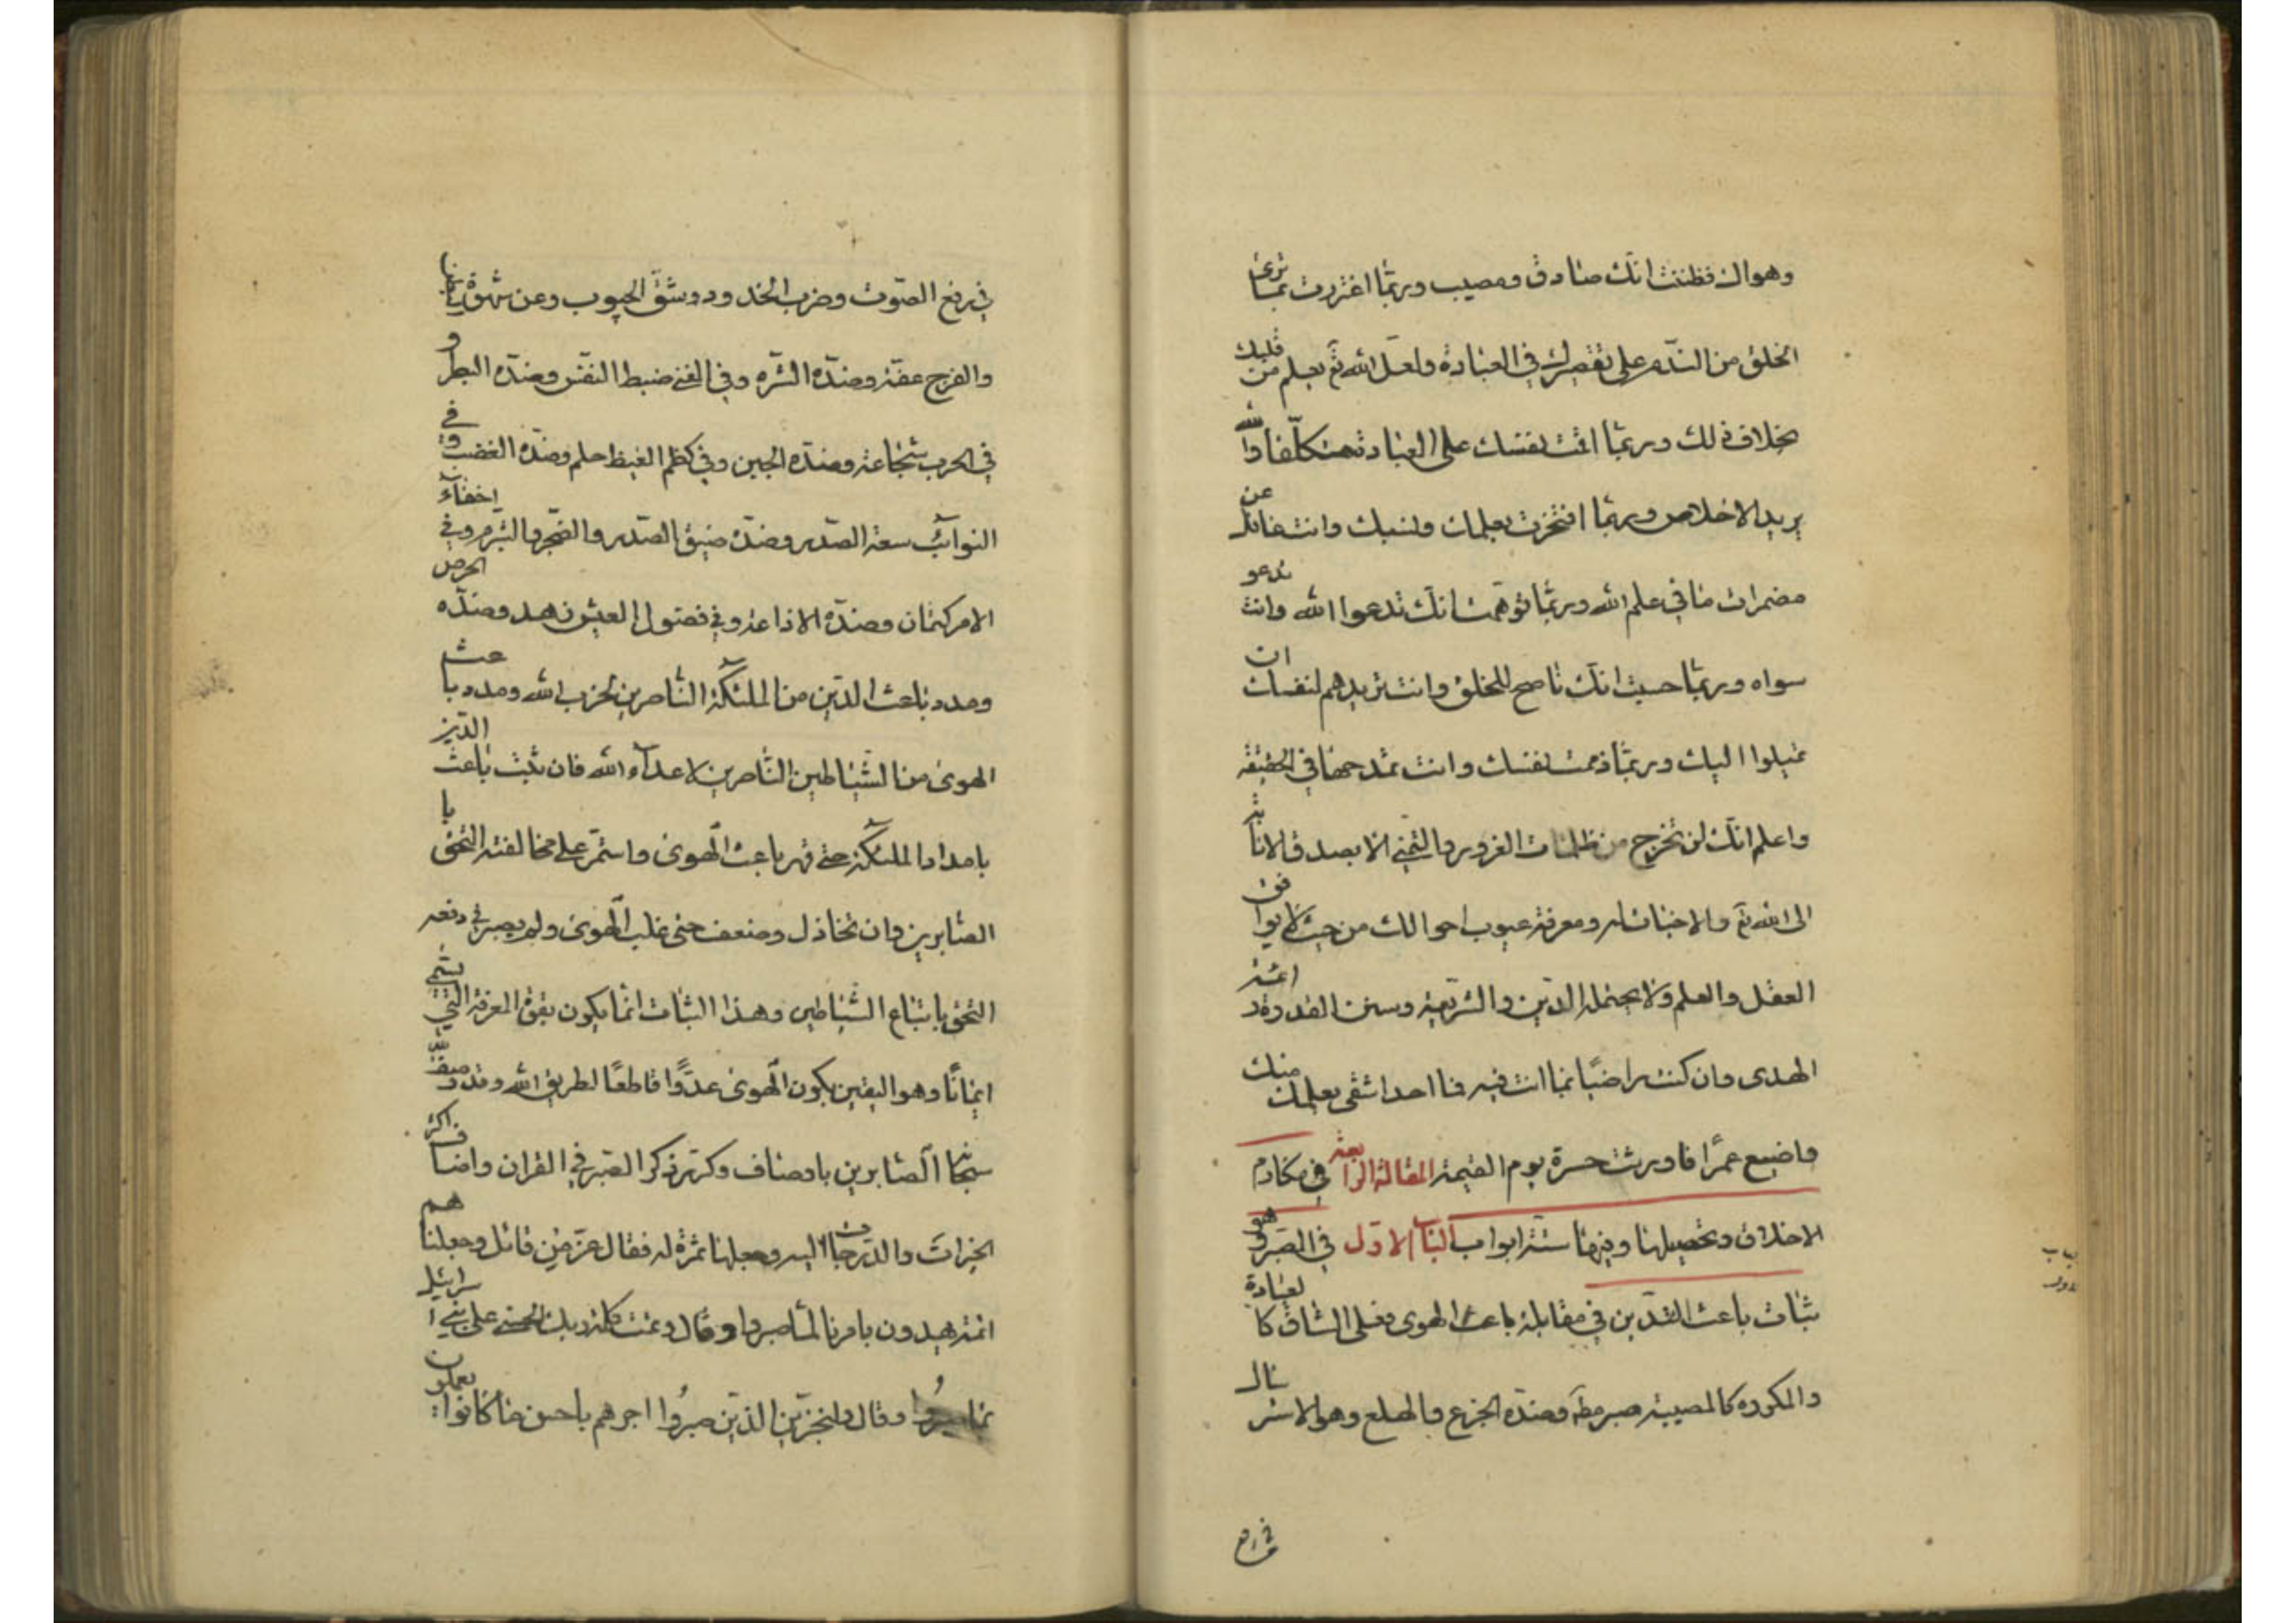 وهواك فظننت انك صادق ومصيب وربما اغتررت بما ترى
الخلق من الندم على تقصيرك في العبادة ولعل الله تع يعلم من قلبك
بخلاف ذلك وربما اقمت نفسك على العبادة متكلفا والله
يريد الاخلاص وربما افتخرت بعلمك ونسبك وانت غافل عن
مضمرات ما في علم الله وربما توهمت انك تدعوا الله وانت تدعو
سواه وربما حسبت انك ناصح للخلق وانت تريدهم لنفسك ان
تميلوا اليك وربما ذممت نفسك وانت تمدحها في الحقيقة
واعلم انك لن تخرج من ظلمات الغرور والتمني الا بصدق الانابة
الى الله تع والاخبات له ومعرفة عيوب احوالك من حيث لا يوافق
العقل والعلم ولا يحتمله الدين والشريعة وسنن القدوة وائمة
الهدى وان كنت راضيا بما انت فيه فما احد اشقى بعلمك منك
واضيع عمرا فاورثت حسرة يوم القيمة المقالة الرابعة في مكارم
الاخلاق وتحصيلها وفيها ستة ابواب الباب الاول في الصبر وهو
ثبات باعث الدين في مقابلة باعث الهوى وفعلى الشاق كالعبادة
والمكروه كالمصيبة صبر مط وضده الجزع والهلع وهو الاسترسال
في رفع
في رفع الصوت وضرب الخدود وشق الجيوب وعن شهوة البطن
والفرج عفة وضده الشره وفي الغنى ضبط النفس وضده البطر و
في الحرب شجاعة وضده الجبن وفي كظم الغيظ حلم وضده الغضب وفي
النوائب سعة الصدر وضده ضيق الصدر والضجر والتبرم وفي اخفاء
الامر كتمان وضده الاذاعة وفي فضول العيش زهد وضده الحرص
ومدد باعث الدين من الملئكة الناصرين لحزب الله ومدد باعث
الهوى من الشياطين الناصرين لاعداء الله فان ثبت باعث الدين
بامداد الملئكة حتى قهر باعث الهوى واستمر على مخالفته التحق با
الصابرين وان تخاذل وضعف حتى غلب الهوى ولم يصبر في دفعه
التحق باتباع الشياطين وهذا الثبات انما يكون بقوة المعرفة التي تسمى
ايمانا وهو اليقين بكون الهوى عدوا قاطعا لطريق الله وقد وصف الله
سبحانه الصابرين باوصاف وكرر ذكر الصبر في القران واضاف اكثر
الخيرات والدرجات اليه وجعلها ثمرة له فقال عز من قائل وجعلناهم
ائمة يهدون بامرنا لما صبروا وقال وتمت كلمة ربك الحسنى على بني اسرائيل
بما صبروا وقال ولنجزين الذين صبروا اجرهم باحسن ما كانوا يعملون